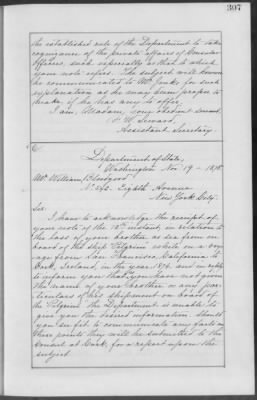 307
the established rule of the Department to take
cognizance of the private affairs of Consular
Officers, such especially as that to which
your note refers. The subject will however
be communicated to Mr. Jenks for such
explanation as he may deem proper to
make, if he has any to offer.
I am, Madam, Your obedient servant,
F. W. Seward,
Assistant Secretary.
Department of State,
Washington Nov 19 - 1878.
Mr. William Bloodgood
No. 240. Eighth Avenue
New York City.
Sir:
I have to acknowledge the receipt of
your note of the 18th instant, in relation to
the loss of your brother at sea from on
board of the ship Pilgrim while on a voy-
age from San Francisco, California to
Cork, Ireland, in the year 1874, and in reply
to inform you that you have not given
the name of your brother or any par-
ticulars of his shipment on board of
the Pilgrim the Department is unable to
give you the desired information. Should
you see fit to communicate any facts on
these points they will be submitted to the
Consul at Cork, for a report upon the
subject.